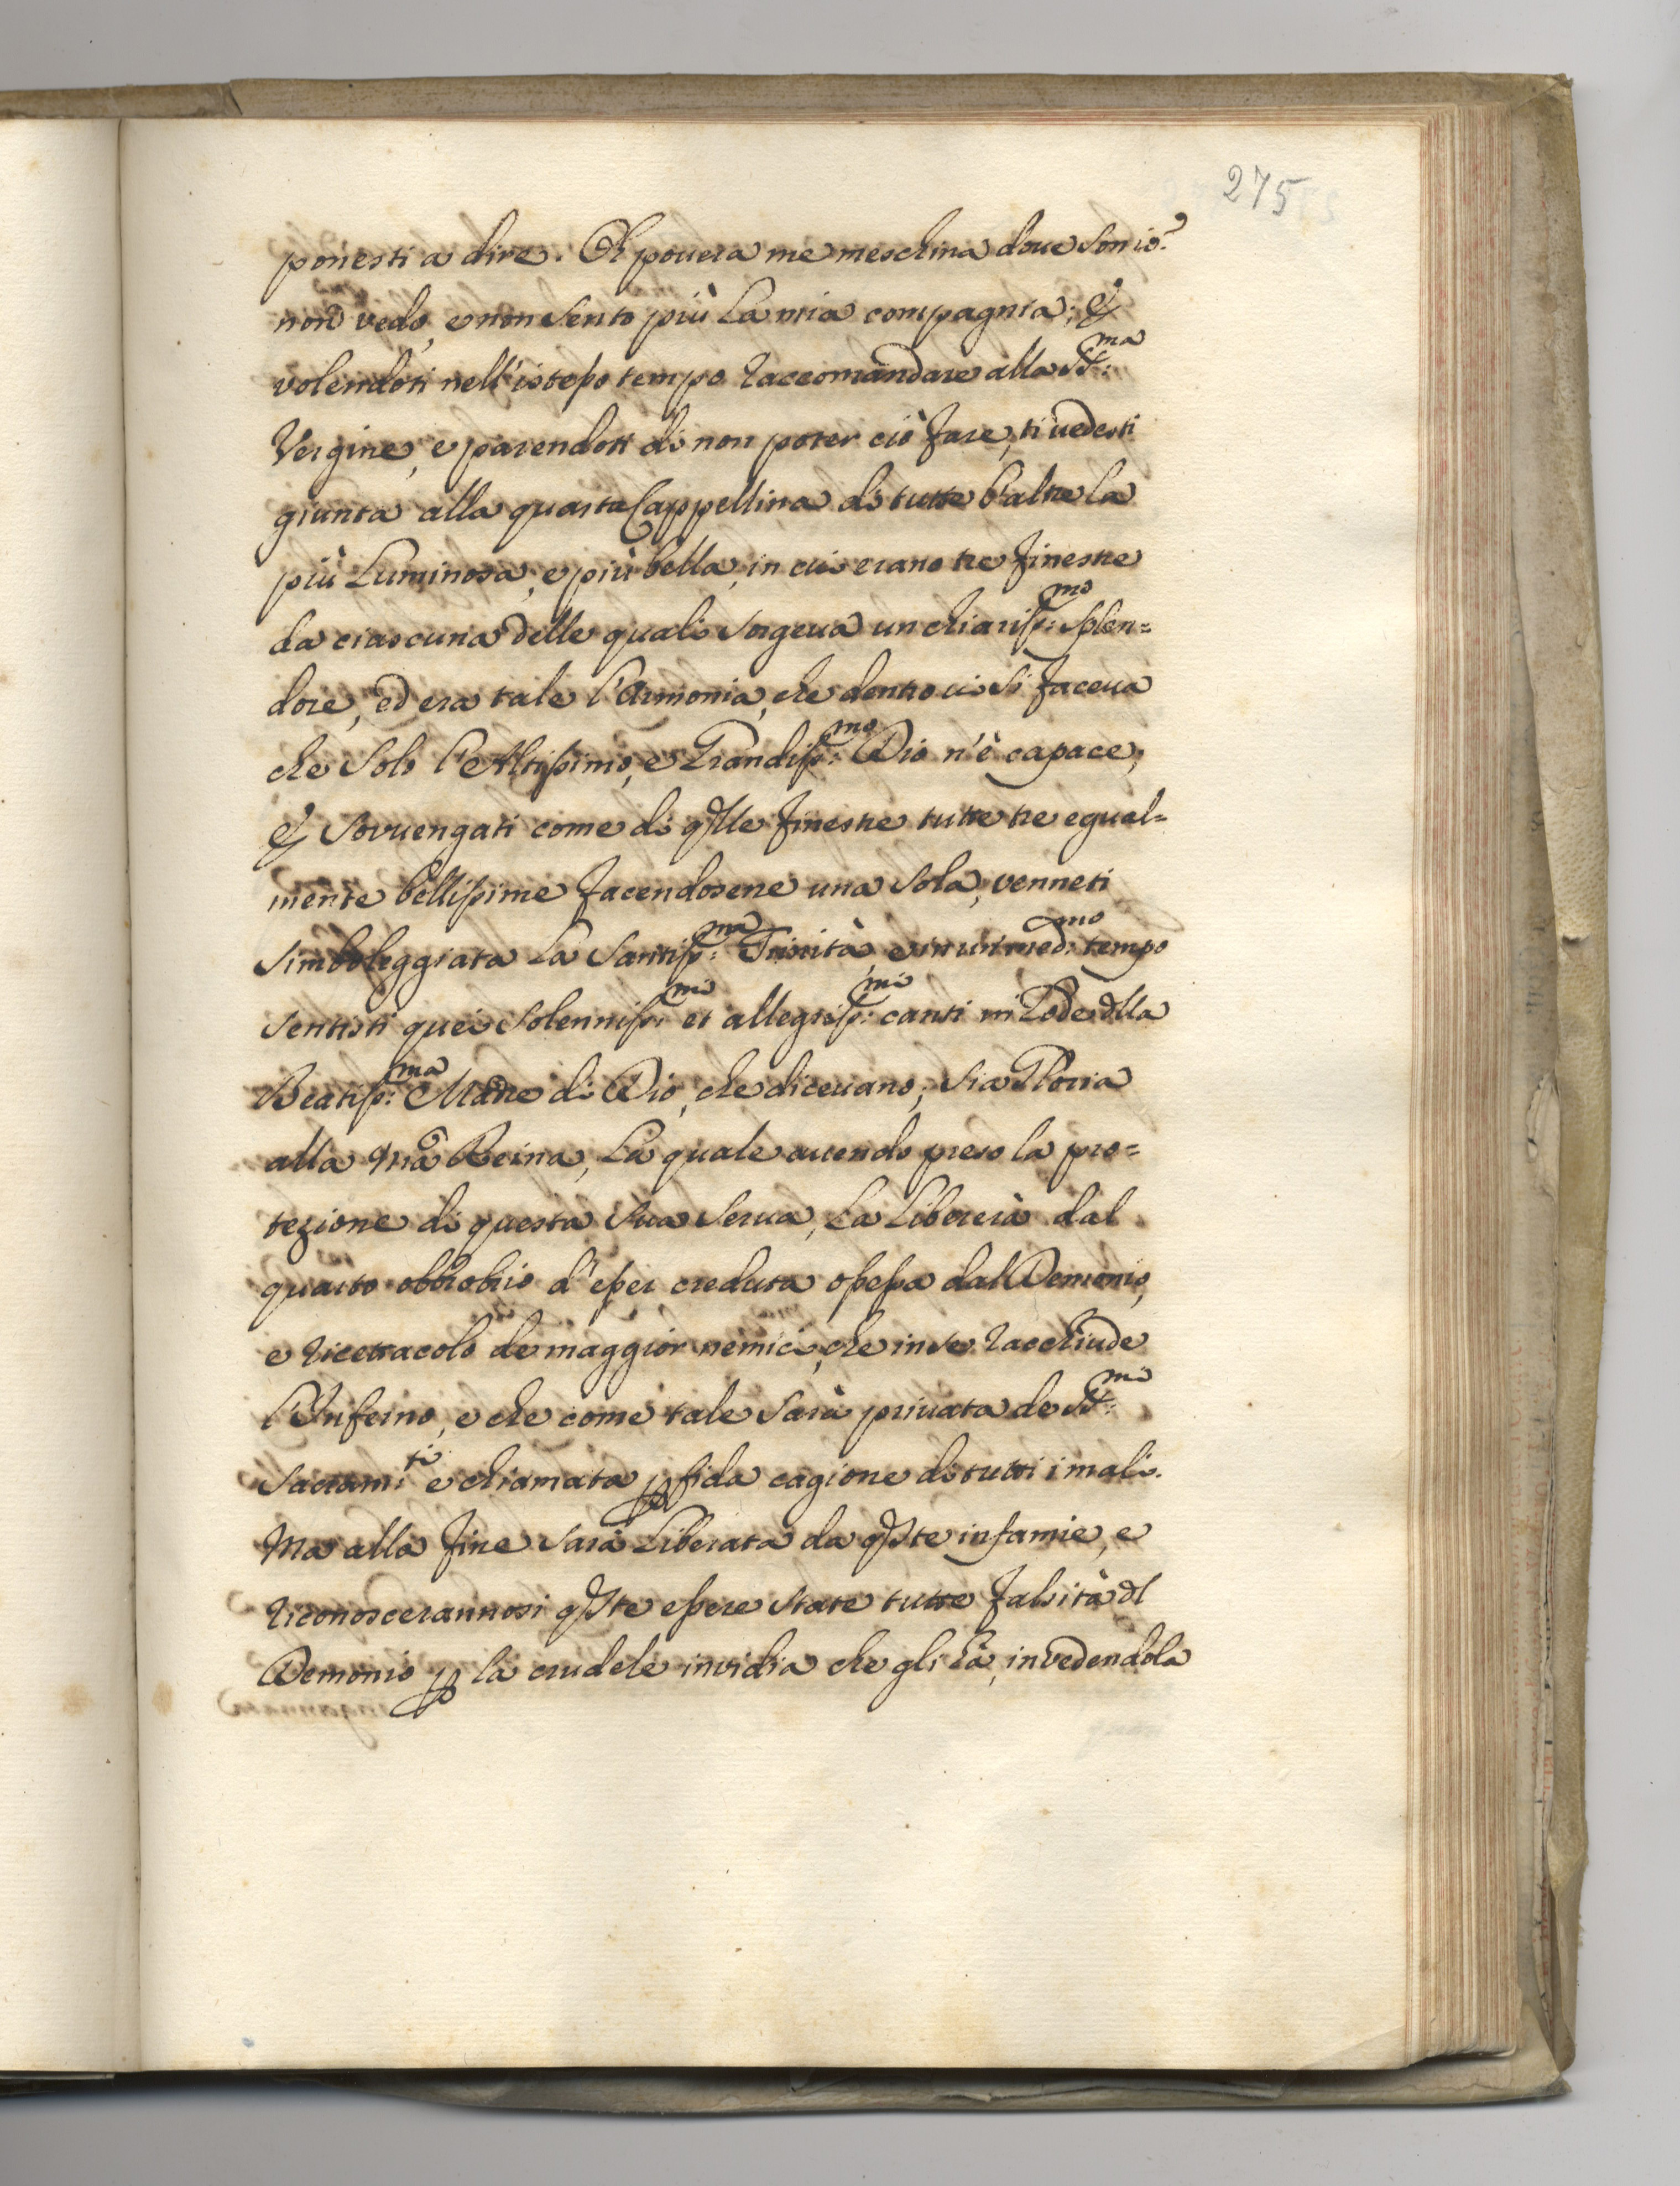 275
ponesti a dire. Oh povera me meschina doue son io?
non vedo, e non sento più la mia compagnia; e
volendoti nell'istesso tempo raccomandare alla SS:ma
Vergine, e parendoti di non poter ciò fare, ti uedesti
giunta alla quarta Cappellina di tutte l'altre la
più Luminosa, e più bella, in cui erano tre finestre
da ciascuna delle quali sorgeua un chiariss:mo splen=
dore, ed era tale l'Armonia, che dentro ui si faceua
che solo l'Altissimo, e Grandiss:mo Dio n'è capace,
e sovuengati come di qlle finestre tutte tre egual=
mente bellissime facendosene una sola, venneti
simboleggiata La Santiss:ma Trinità, e in un med:mo tempo
sentisti quei solenniss:mi et allegriss:mi canti in lode dlla
Beatiss:ma Madre di Dio, che diceuano; sia Gloria
alla nra Reina, La quale auendo preso la pro=
tezione di questa sua serua, La Libererà dal
quarto obbrobrio d'esser creduta ossessa dal Demonio,
e ricettacolo de maggior nemici, che in se racchiude
l'Inferno, e che come tale sarà priuata de SS:mi
Sacram:ti e chiamata pfida cagione di tutti i mali.
Ma alla fine sarà Liberata da qste infamie, e
riconoscerannosi qste essere state tutte falsità dl
Demonio p la crudele invidia che gli hà, in vedendola